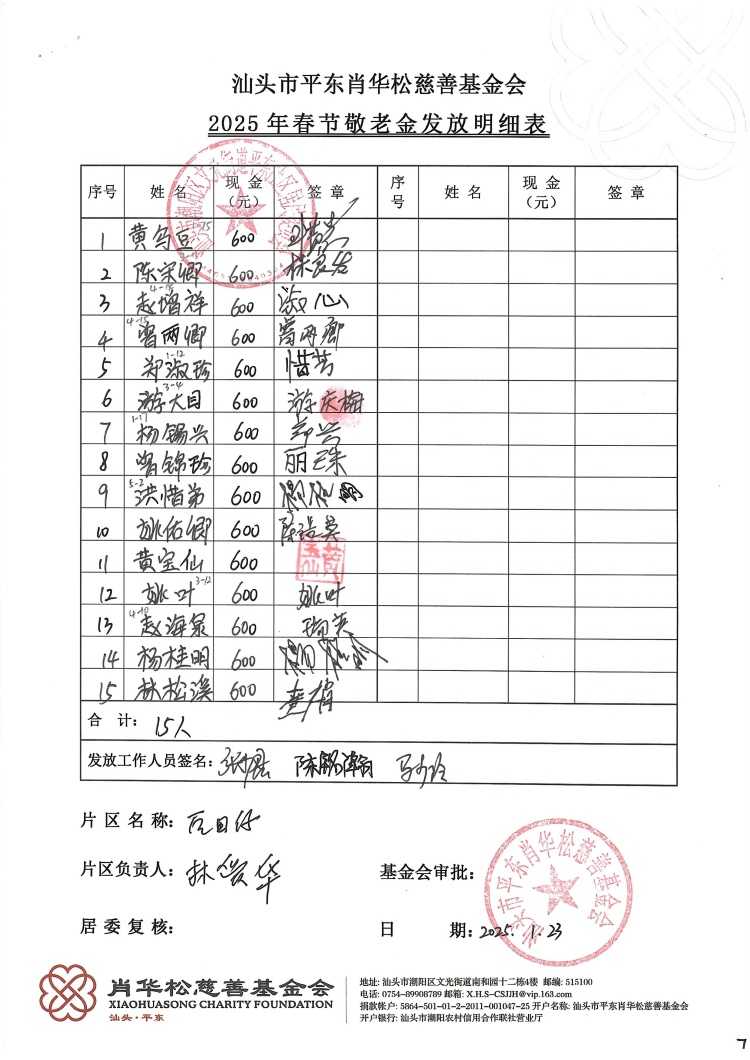 汕头市平东肖华松慈善基金会
2025年春节敬老金发放明细表
序号 姓名 现金（元） 签章 序号 姓名 现金（元） 签章
1 黄乌豆 600
2 陈宋卿 600 林良发
3 4-15 赵增祥 600 淑仙
4 4-15 曾两卿 600 曾两卿
5 1-12 郑淑珍 600 惜芳
6 3-4 游大目 600 游庆梅
7 1-11 杨锡兴 600
8 曾锦珍 600 丽珠
9 5-2 洪惜弟 600
10 姚佑卿 600
11 黄宝仙 600 黄宝仙
12 姚叶 3-12 600 姚叶
13 4-10 赵海泉 600
14 杨桂明 600
15 林松溪 600
合 计: 15人
发放工作人员签名:
片区名称:
片区负责人: 林俊华
基金会审批:
居委复核:
日 期: 2025.1.23
汕头市平东肖华松慈善基金会
肖华松慈善基金会
XIAOHUASONG CHARITY FOUNDATION
汕头·平东
地址: 汕头市潮阳区文光街道南和园十二栋4楼 邮编: 515100
电话: 0754-89908789 邮箱: X.H.S-CSJJH@vip.163.com
捐款帐户: 5864-501-01-2-2011-001047-25 开户名称: 汕头市平东肖华松慈善基金会
开户银行: 汕头市潮阳农村信用合作联社营业厅
7